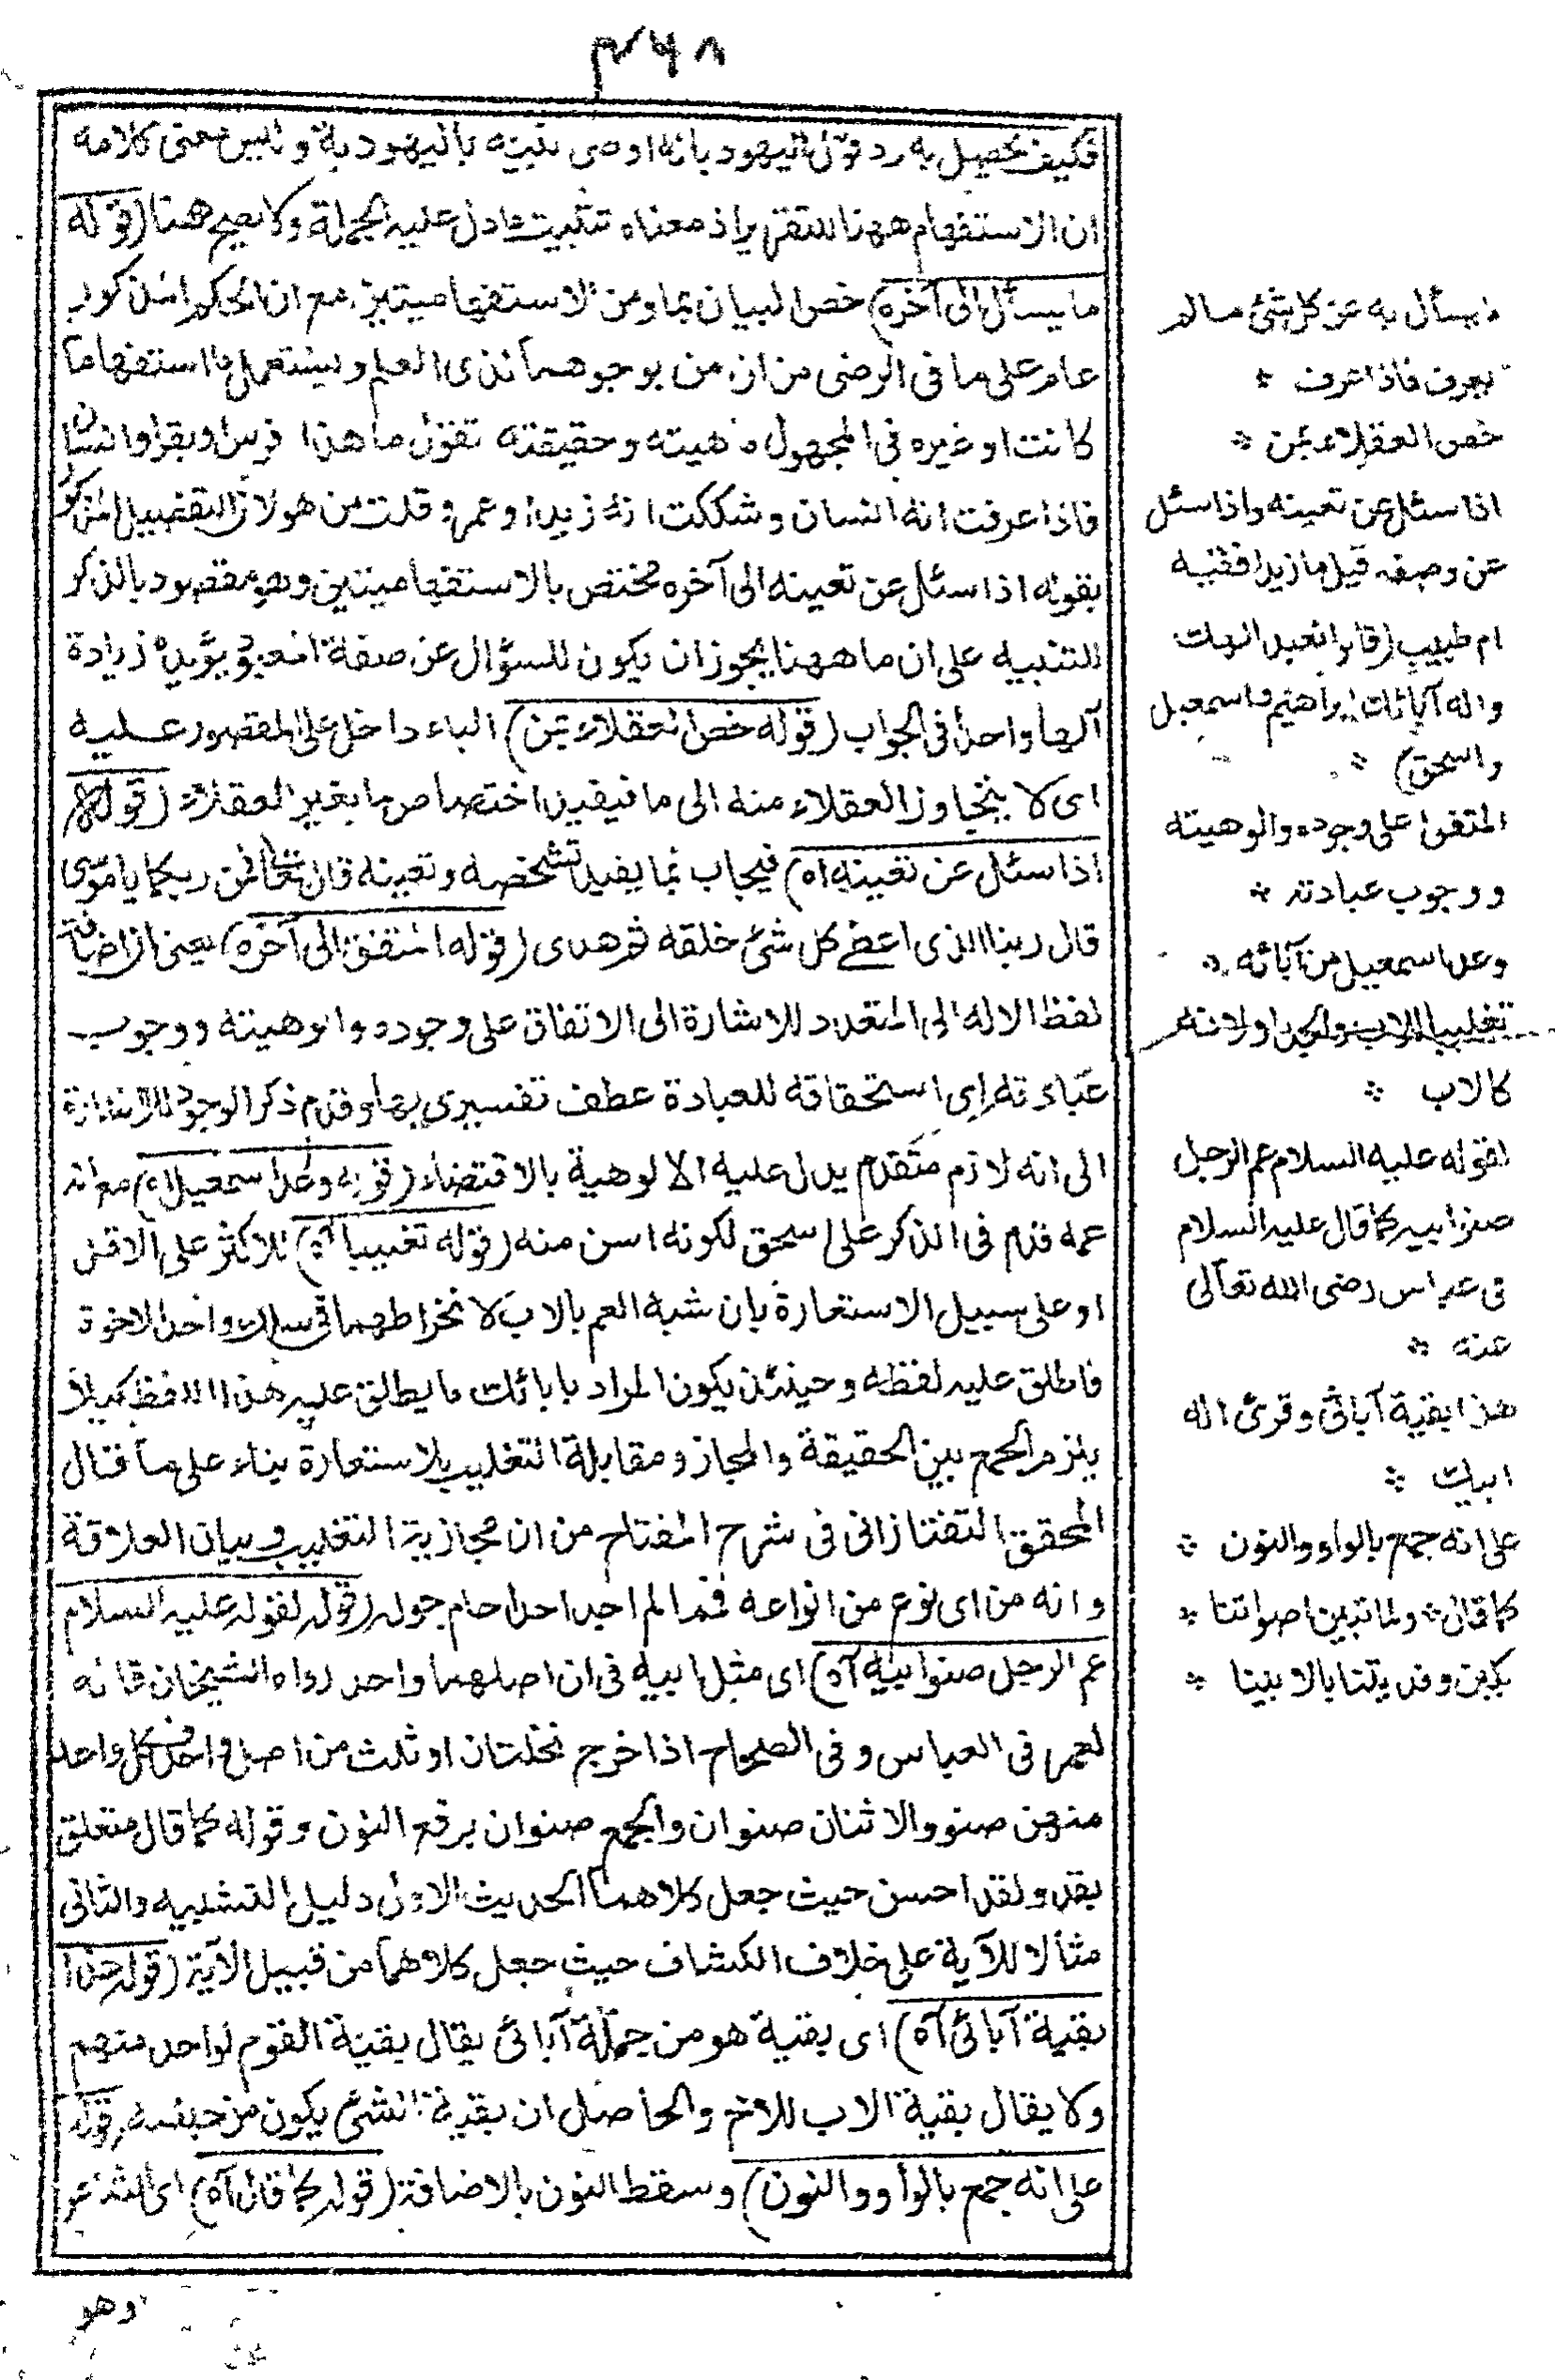 ٤٦٨
فكيف يحصل به رد قول اليهود بانه اوصى بنيه باليهودية وليس معنى كلامه
ان الاستفهام ههنا للتقرير اذ معناه تثبيت مادل عليه الجملة ولا يصح هنا (قوله
ما يسأل الى آخره) خص البيان بما ومن الاستفهاميتين مع ان الحكم المذكور
عام على ما فى الرضى من ان من بوجوهها لذى العلم ويستعمل ما استفهاما
كانت او غيره فى المجهول ماهيته وحقيقته تقول ما هذا افرس او بقر او انسان
فاذا عرفت انه انسان وشككت انه زيد او عمرو قلت من هو لان التفصيل المذكور
بقوله اذا سئل عن تعينه الى آخره مختص بالاستفهاميتين وهو مقصود بالذكر
للتنبيه على ان ما ههنا يجوز ان يكون للسؤال عن صفة المعبود يؤيده زيادة
آلها واحدا فى الجواب (قوله خص العقلاء بمن) الباء داخل على المقصور عليه
اى لا يتجاوز العقلاء منه الى ما فيفيد اختصاص ما بغير العقلاء (قوله
اذا سئل عن تعينه اه) فيجاب بما يفيد تشخصه وتعينه قال تعالى فمن ربكما يا موسى
قال ربنا الذى اعطى كل شئ خلقه ثم هدى (قوله المتفق الى آخره) يعنى ان اضافة
لفظ الاله الى المتعدد للاشارة الى الاتفاق على وجوده والوهيته ووجوب
عبادته اى استحقاقه للعبادة عطف تفسيرى بها وقدم ذكر الوجود للاشارة
الى انه لازم متقدم يدل عليه الالوهية بالاقتضاء (قوله وعد اسمعيل اه) مع انه
عمه قدم فى الذكر على اسحق لكونه اسن منه (قوله تغليبا اه) للاكثر على الاقل
او على سبيل الاستعارة بان شبه العم بالاب لانخراطهما فى سلك واحد الاخوة
فاطلق عليه لفظه وحينئذ يكون المراد بابائك ما يطلق عليه هذا اللفظ كيلا
يلزم الجمع بين الحقيقة والمجاز ومقابلة التغليب بالاستعارة بناء على ما قال
المحقق التفتازانى فى شرح المفتاح من ان مجازية التغليب وبيان العلاقة
وانه من اى نوع من انواعه فمما لم اجد احدا حام حوله (قوله لقوله عليه السلام
عم الرجل صنو ابيه آه) اى مثل ابيه فى ان اصلهما واحد رواه الشيخان قاله
لعمر فى العباس وفى الصحاح اذا خرج نخلتان او ثلث من اصل واحد فكل واحد
منهن صنو والاثنان صنوان والجمع صنوان برفع النون وقوله كما قال متعلق
بقد ولقد احسن حيث جعل كلاهما الحديث الاول دليل التشبيه والثانى
مثالا للآية على خلاف الكشاف حيث جعل كلاهما من قبيل الآية (قوله هذا
بقية آبائى آه) اى بقية هو من جملة آبائى يقال بقية القوم لواحد منهم
ولا يقال بقية الاب للاخ والحاصل ان بقية الشئ يكون من جنسه (قوله
على انه جمع بالواو والنون) وسقط النون بالاضافة (قوله كما قال آه) اى الشاعر
وهو
ما يسأل به عن كل شئ ما لم
يعرف فاذا عرف *
خص العقلاء بمن *
اذا سئل عن تعينه واذا سئل
عن وصفه قيل ما زيد افقيه
ام طبيب (قالوا نعبد الهك
واله آبائك ابراهيم واسمعيل
واسحق) *
المتفق على وجوده والوهيته
ووجوب عبادته *
وعد اسمعيل من آبائه *
تغليبا للاب والجد او لانه
كالاب *
لقوله عليه السلام عم الرجل
صنو ابيه كما قال عليه السلام
فى عباس رضى الله تعالى
عنه *
هذا بقية آبائى وقرئ اله
ابيك *
على انه جمع بالواو والنون *
كما قال * ولما تبين اصواتنا *
بكين وفديننا بالابينا *